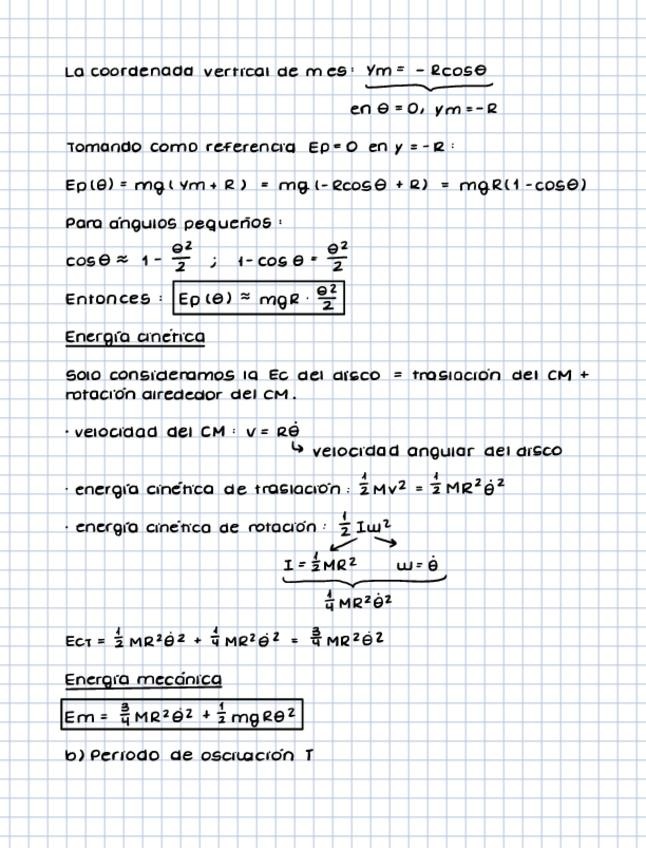 La coordenada vertical de m es: ym = - Rcosθ
en θ = 0, ym = -R
Tomando como referencia Ep = 0 en y = -R :
Ep(θ) = mg( ym + R ) = mg (-Rcosθ + R) = mgR(1 - cosθ)
Para ángulos pequeños :
cosθ ≈ 1 - θ²/2 ; 1 - cos θ = θ²/2
Entonces : Ep (θ) ≈ mgR · θ²/2
Energía cinética
Solo consideramos la Ec del disco = traslación del CM +
rotación alrededor del CM.
· velocidad del CM : V = Rθ̇
↳ velocidad angular del disco
· energía cinética de traslación : 1/2 Mv² = 1/2 MR²θ̇²
· energía cinética de rotación : 1/2 Iω²
I = 1/2 MR² ω = θ̇
1/4 MR²θ̇²
EcT = 1/2 MR²θ̇² + 1/4 MR²θ̇² = 3/4 MR²θ̇²
Energía mecánica
Em = 3/4 MR²θ̇² + 1/2 mgRθ²
b) Período de oscilación T